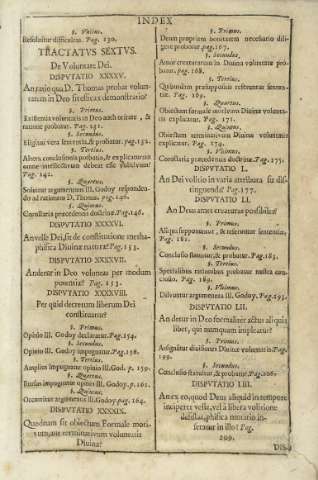 INDEX
§. Vltimus.
Resoluitur difficultas. Pag. 130.
TRACTATVS SEXTVS.
De Voluntate Dei.
DISPVTATIO XXXXV.
An ratio qua D. Thomas probat volun-
tatem in Deo sit efficax demonstratio?
§. Primus.
Existentia voluntatis in Deo auctoritate, &
ratione probatur. Pag. 131.
§. Secundus.
Eligitur vera sententia, & probatur. pag. 132.
§. Tertius.
Altera conclusio
Pag. 142.
§. Quartus.
Soluitur argumentum Ill. Godoy responden-
do ad rationem D. Thomæ. pag. 146.
§. Quintus.
Corollaria præcedentis doctrinæ. Pag. 146.
DISPVTATIO XXXXVI.
An velle Dei, sit de constitutione metha-
phisica Diuinæ naturæ? Pag. 153.
DISPVTATIO XXXXVII.
An detur in Deo voluntas per modum
potentiæ? Pag. 153.
DISPVTATIO XXXXVIII.
Per quid decretum liberum Dei
constituatur?
§. Primus.
Opinio Ill. Godoy declaratur. Pag. 154.
§. Secundus.
Opinio Ill. Godoy impugnatur. Pag. 156.
§. Tertius.
Amplius impugnatur opinio Ill. God. p. 159.
§. Quartus.
Iterum impugnatur opinio Ill. God. p. 161.
§. Quintus.
Occurritur argumentis Ill. Godoy. pag. 164.
DISPVTATIO XXXXIX.
Quodnam sit obiectum Formale moti-
uum, aut terminatiuum voluntatis
Diuinæ?
§. Primus.
Deum propriam bonitatem necessario dili-
gere probatur. pag. 167.
§. Secundus.
Amor creaturarum in Diuina voluntate pro-
batur. pag. 168.
§. Tertius.
Quibusdam præsuppositis referuntur senten-
tiæ. Pag. 169.
§. Quartus.
Obiectum formale motiuum Diuinæ volunta-
tis explicatur, & probatur. Pag. 171.
§. Quintus.
Obiectum terminatiuum Diuinæ voluntatis
explicatur. Pag. 174.
§. Vltimus.
Corollaria præcedentis doctrinæ. Pag. 175.
DISPVTATIO L.
An Dei volitio in varia attributa sit dis-
tinguenda? Pag. 177.
DISPVTATIO LI.
An Deus amet creaturas possibiles?
§. Primus.
Aliqua supponuntur, & referuntur sententiæ.
Pag. 181.
§. Secundus.
Conclusio statuitur, & probatur. Pag. 183.
§. Tertius.
Specialibus rationibus probatur nostra con-
clusio. Pag. 189.
§. Vltimus.
Diluuntur argumenta Ill. Godoy. Pag. 193.
DISPVTATIO LII.
An detur in Deo formaliter actus aliquis
liber, qui numquam impleatur?
§. Primus.
Assignatur diuisiones Diuinæ voluntatis. Pag.
199.
§. Secundus.
Conclusio statuitur, & probatur. Pag. 206.
DISPVTATIO LIII.
An ex eo, quod Deus aliquid in tempore
incipere velit, vel à libera volitione
desistat, phisica mutatio in-
feratur in illo? Pag.
209.
DIS-